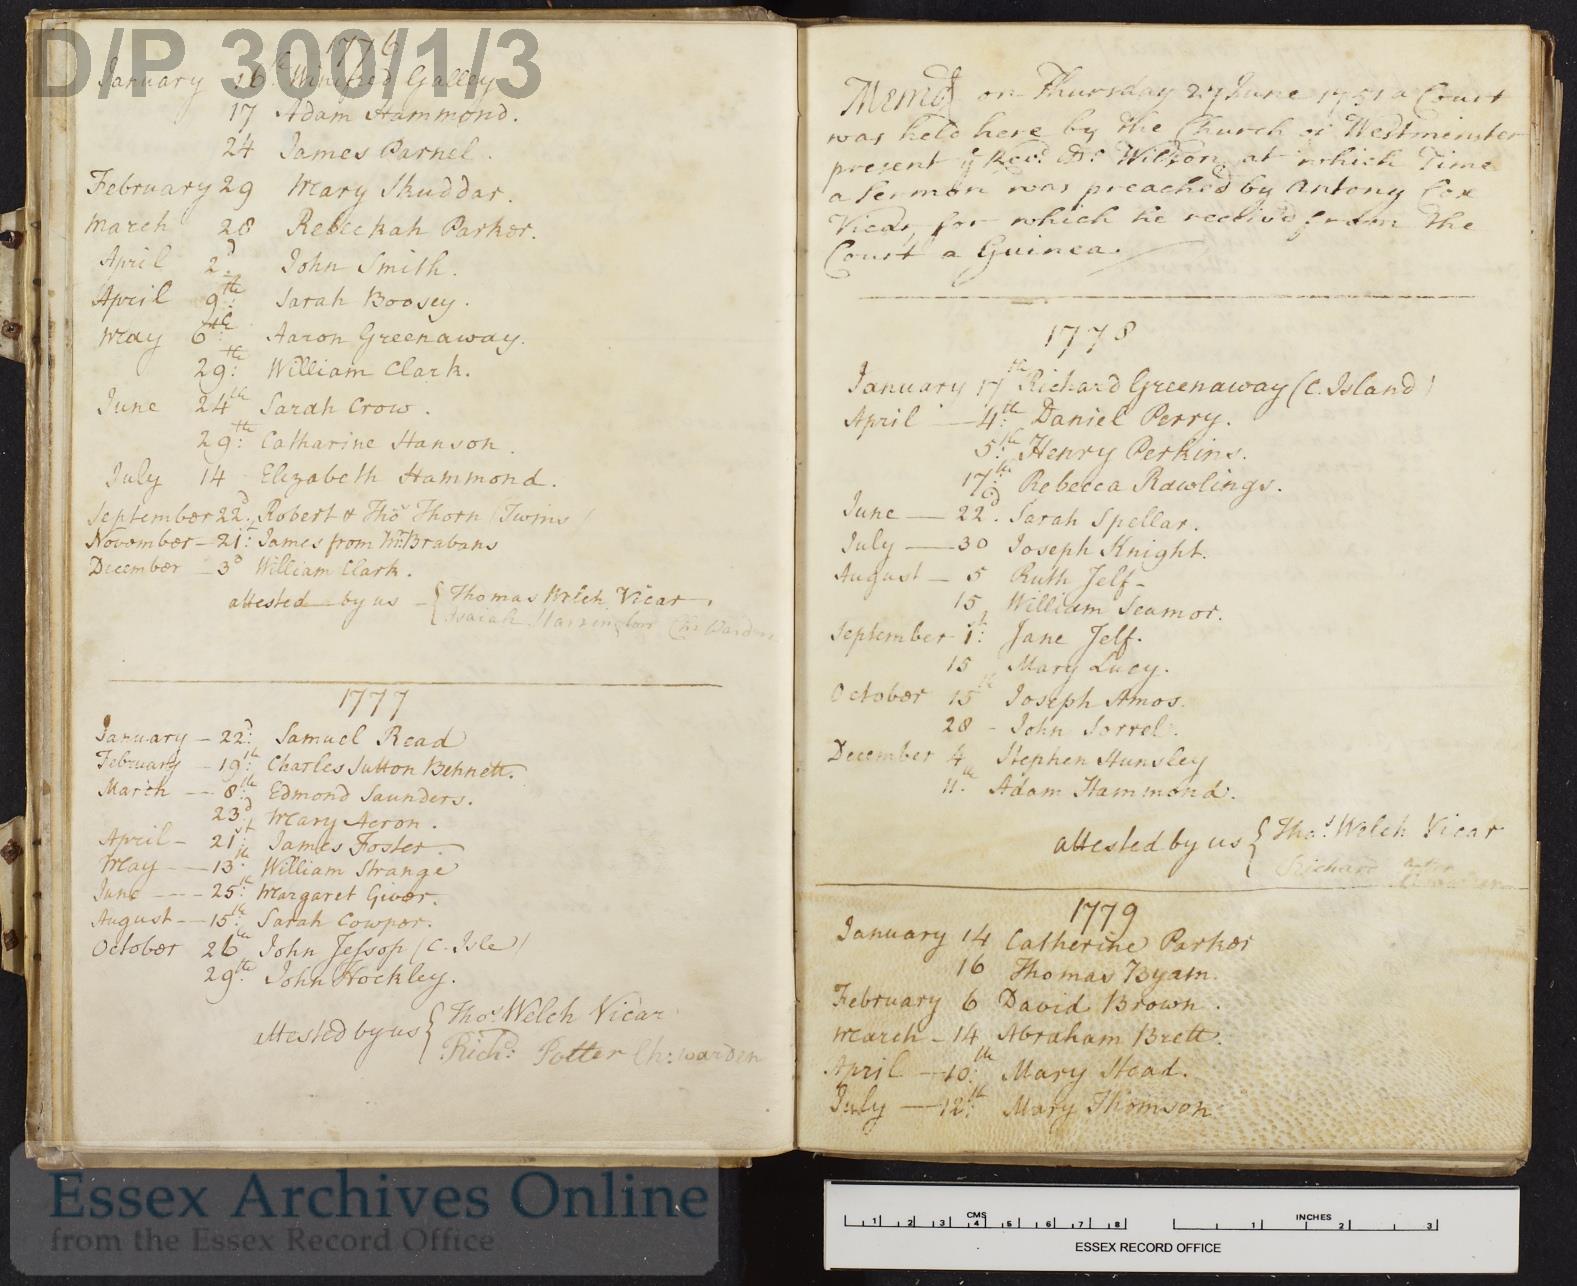 D/P 300/1/3
1776
January 16th Winifred Galley
17 Adam Hammond.
24 James Parnel.
February 29 Mary Skuddar.
March 28 Rebeckah Parker.
April 2d. John Smith.
April 9th: Sarah Boosey.
May 6th: Aaron Greenaway.
29th: William Clark.
June 24th Sarah Crow.
29th: Catharine Hanson.
July 14 Elizabeth Hammond.
September 22d: Robert & Thos Thorn (Twins)
November - 21: James from Mr. Brabans
December - 3d William Clark.
attested by us - { Thomas Welch Vicar.
Isaiah Harrington Ch: Warden
1777
January - 22d: Samuel Read
February - 19th: Charles Sutton Bennett.
March - 8th: Edmond Saunders.
23d: Mary Acron.
April - 21st: James Foster.
May - 13th: William Strange
June - 25th: Margaret Giver.
August - 15th: Sarah Cowper.
October 26th John Jessop (C. Isle)
29th: John Hockley.
attested by us { Thos. Welch Vicar
Richd: Potter Ch: warden
Memd on Thursday 27 June 1751 a Court
was held here by the Church of Westminster
present ye Revd. Dr. Wilson at which Time
a Sermon was preached by Antony Cox
Vicar, for which he receiv'd from the
Court a Guinea.
1778
January 17th Richard Greenaway (C. Island)
April - 4th: Daniel Perry.
5th: Henry Perkins.
17th: Rebecca Rawlings.
June - 22d. Sarah Spellar.
July - 30 Joseph Knight.
August - 5 Ruth Jelf -
15 William Seamor.
September 1st: Jane Jelf.
15 Mary Lucy.
October 15th Joseph Amos.
28 - John Sorrel.
December 4 Stephen Hunsley
11th. Adam Hammond.
attested by us { Thos. Welch Vicar
Richard Potter
1779
January 14 Catherine Parker
16 Thomas Byam.
February 6 David Brown.
March - 14 Abraham Brett.
April - 10th: Mary Head.
July - 12th: Mary Thomson
Essex Archives Online
from the Essex Record Office
CMS
1 2 3 4 5 6 7 8
INCHES
1 2 3
ESSEX RECORD OFFICE